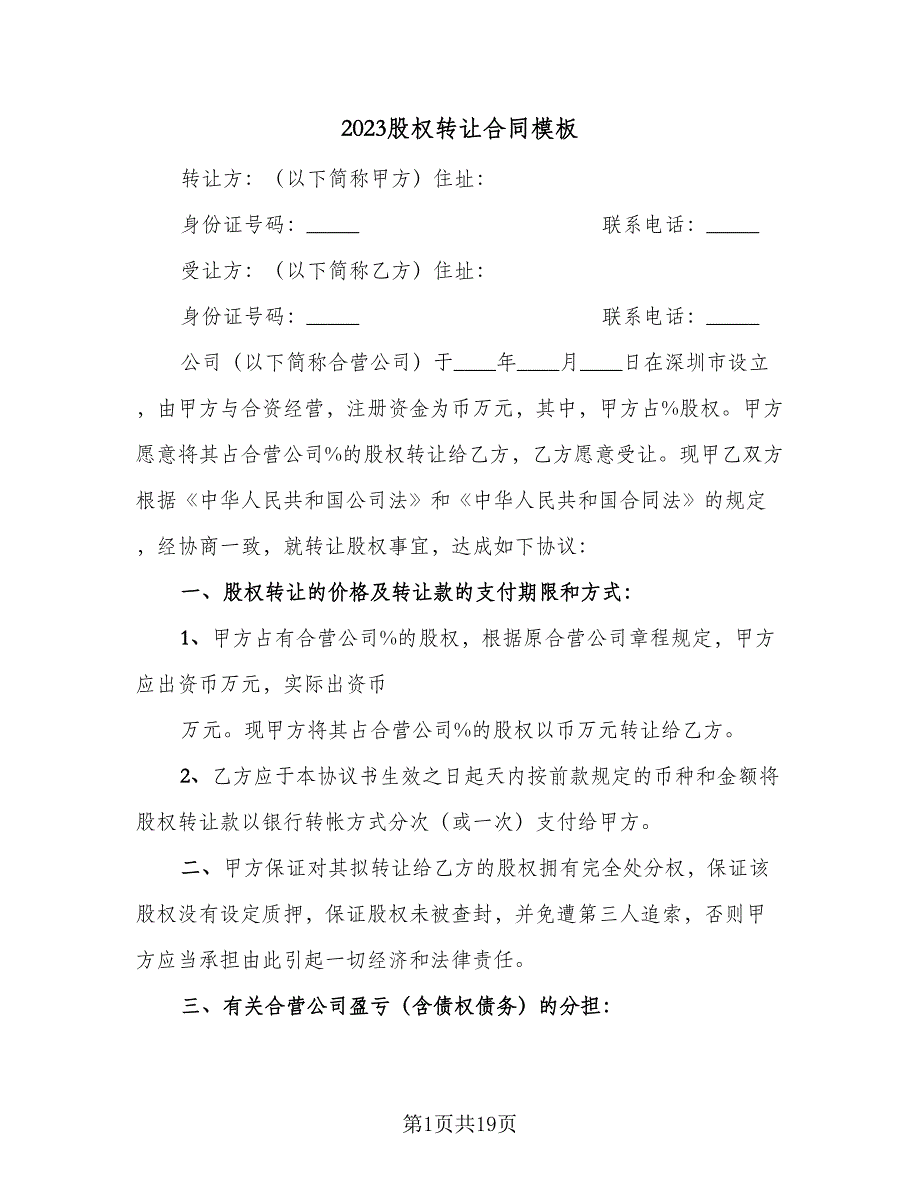 2023股权转让合同模板
转让方：（以下简称甲方）住址：
身份证号码：_____ 联系电话：_____
受让方：（以下简称乙方）住址：
身份证号码：_____ 联系电话：_____
公司（以下简称合营公司）于____年____月____日在深圳市设立
，由甲方与合资经营，注册资金为币万元，其中，甲方占%股权。甲方
愿意将其占合营公司%的股权转让给乙方，乙方愿意受让。现甲乙双方
根据《中华人民共和国公司法》和《中华人民共和国合同法》的规定
，经协商一致，就转让股权事宜，达成如下协议：
一、股权转让的价格及转让款的支付期限和方式：
1、甲方占有合营公司%的股权，根据原合营公司章程规定，甲方
应出资币万元，实际出资币
万元。现甲方将其占合营公司%的股权以币万元转让给乙方。
2、乙方应于本协议书生效之日起天内按前款规定的币种和金额将
股权转让款以银行转帐方式分次（或一次）支付给甲方。
二、甲方保证对其拟转让给乙方的股权拥有完全处分权，保证该
股权没有设定质押，保证股权未被查封，并免遭第三人追索，否则甲
方应当承担由此引起一切经济和法律责任。
三、有关合营公司盈亏（含债权债务）的分担：
第1页共19页